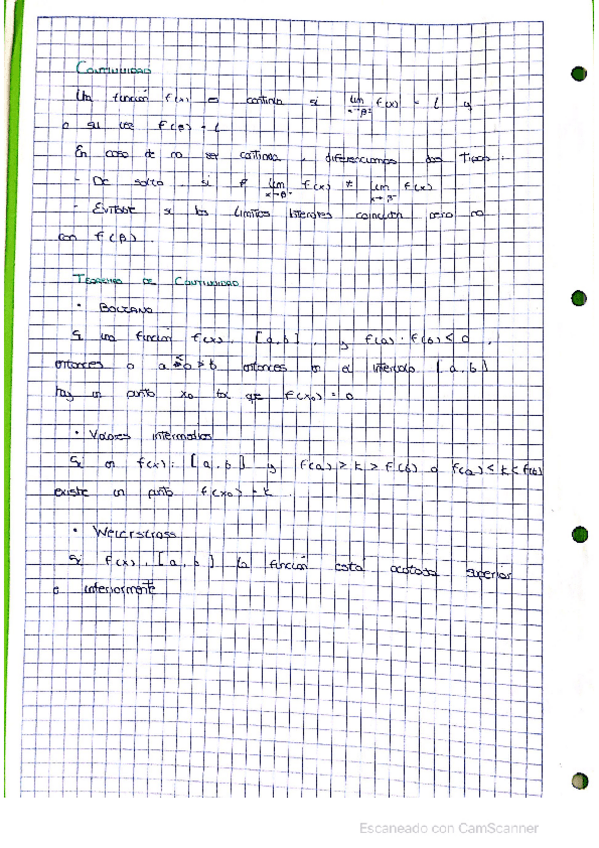 CONTINUIDAD
Una función f(x) es continua si lim x→β f(x) = L y
a su vez f(β) = L
En caso de no ser continua, diferenciamos dos tipos:
- De salto, si lim x→β⁺ f(x) ≠ lim x→β⁻ f(x)
- Evitable si los límites laterales coinciden pero no
con f(β).
TEOREMAS DE CONTINUIDAD
• BOLZANO
Si una función f(x), [a,b], y f(a)·f(b) < 0,
entonces entonces en el intervalo [a,b]
hay un punto x0 tal que f(x0) = 0
• Valores intermedios
Si en f(x): [a,b] y f(a) > k > f(b) o f(a) < k < f(b)
existe un punto f(x0) = k.
• Weierstrass
Si f(x), [a,b] la función está acotada superior
e inferiormente
Escaneado con CamScanner